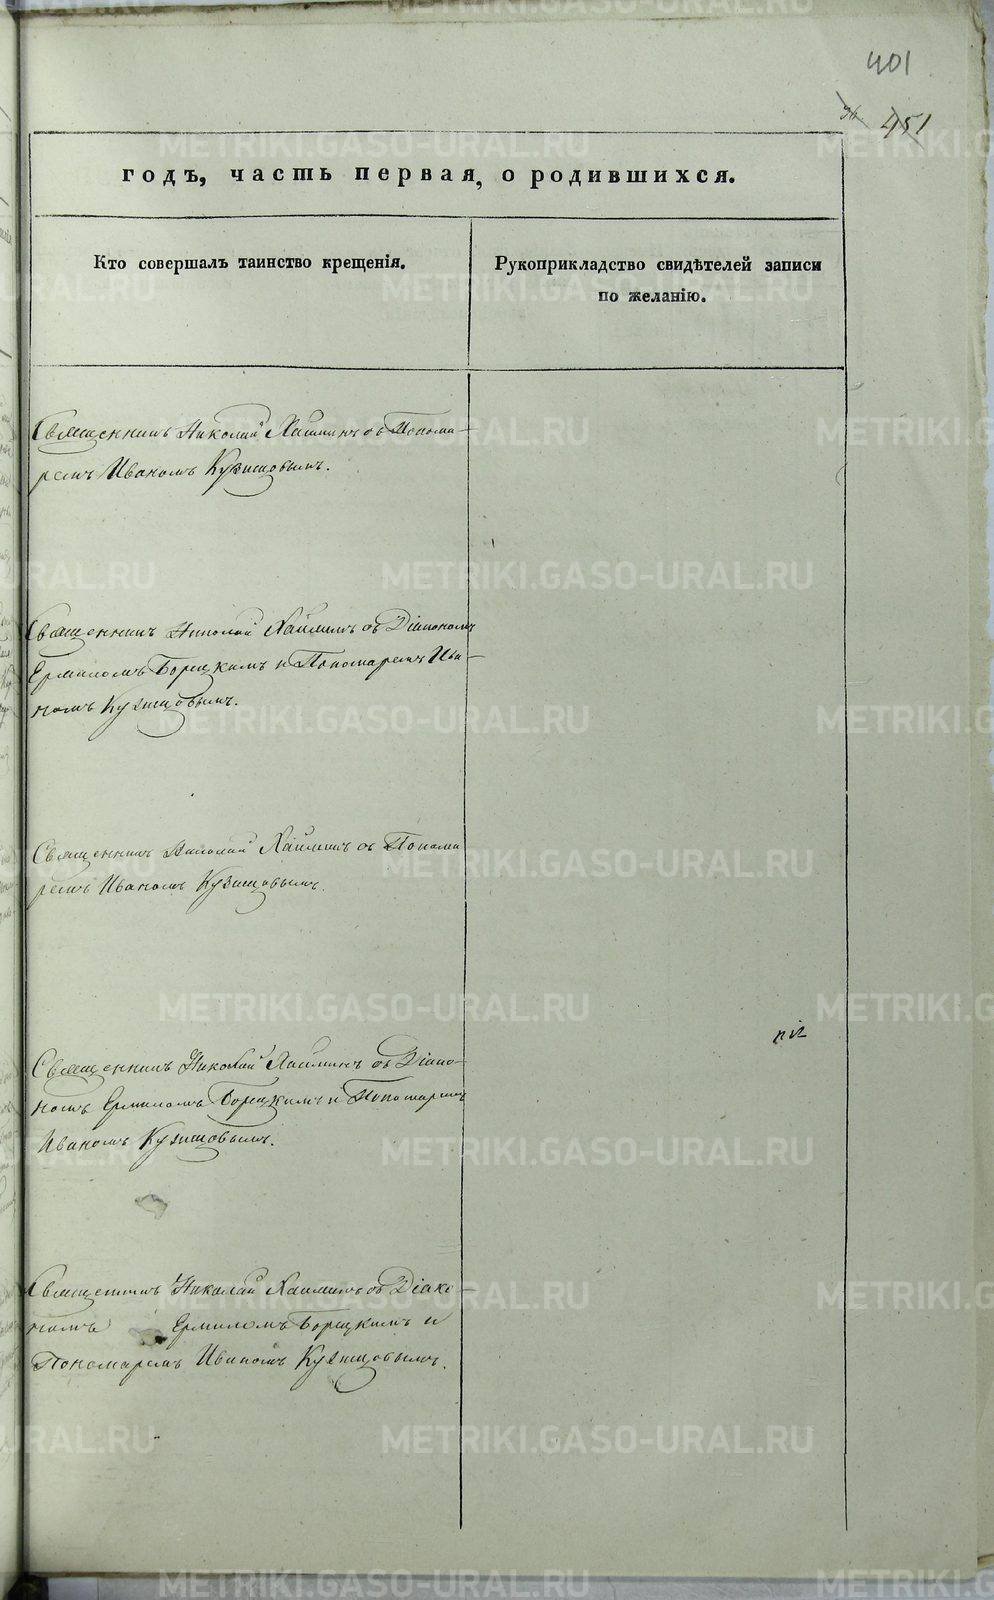 401
451
годъ, часть первая, о родившихся.
Кто совершалъ таинство крещенія.
Рукоприкладство свидѣтелей записи
по желанію.
Священникъ Николай съ Понома-
ремъ Иваномъ Кузнецовымъ.
Священникъ Николай съ Діакономъ
Ермиломъ Борецкимъ и Пономаремъ Ива-
номъ Кузнецовымъ.
Священникъ Николай съ Понома
ремъ Иваномъ Кузнецовымъ.
Священникъ Николай съ Діако-
номъ Ермиломъ Борецкимъ и Пономаремъ
Иваномъ Кузнецовымъ.
Священникъ Николай съ Діако-
номъ Ермиломъ Борецкимъ и
Пономаремъ Иваномъ Кузнецовымъ.
METRIKI.GASO-URAL.RU